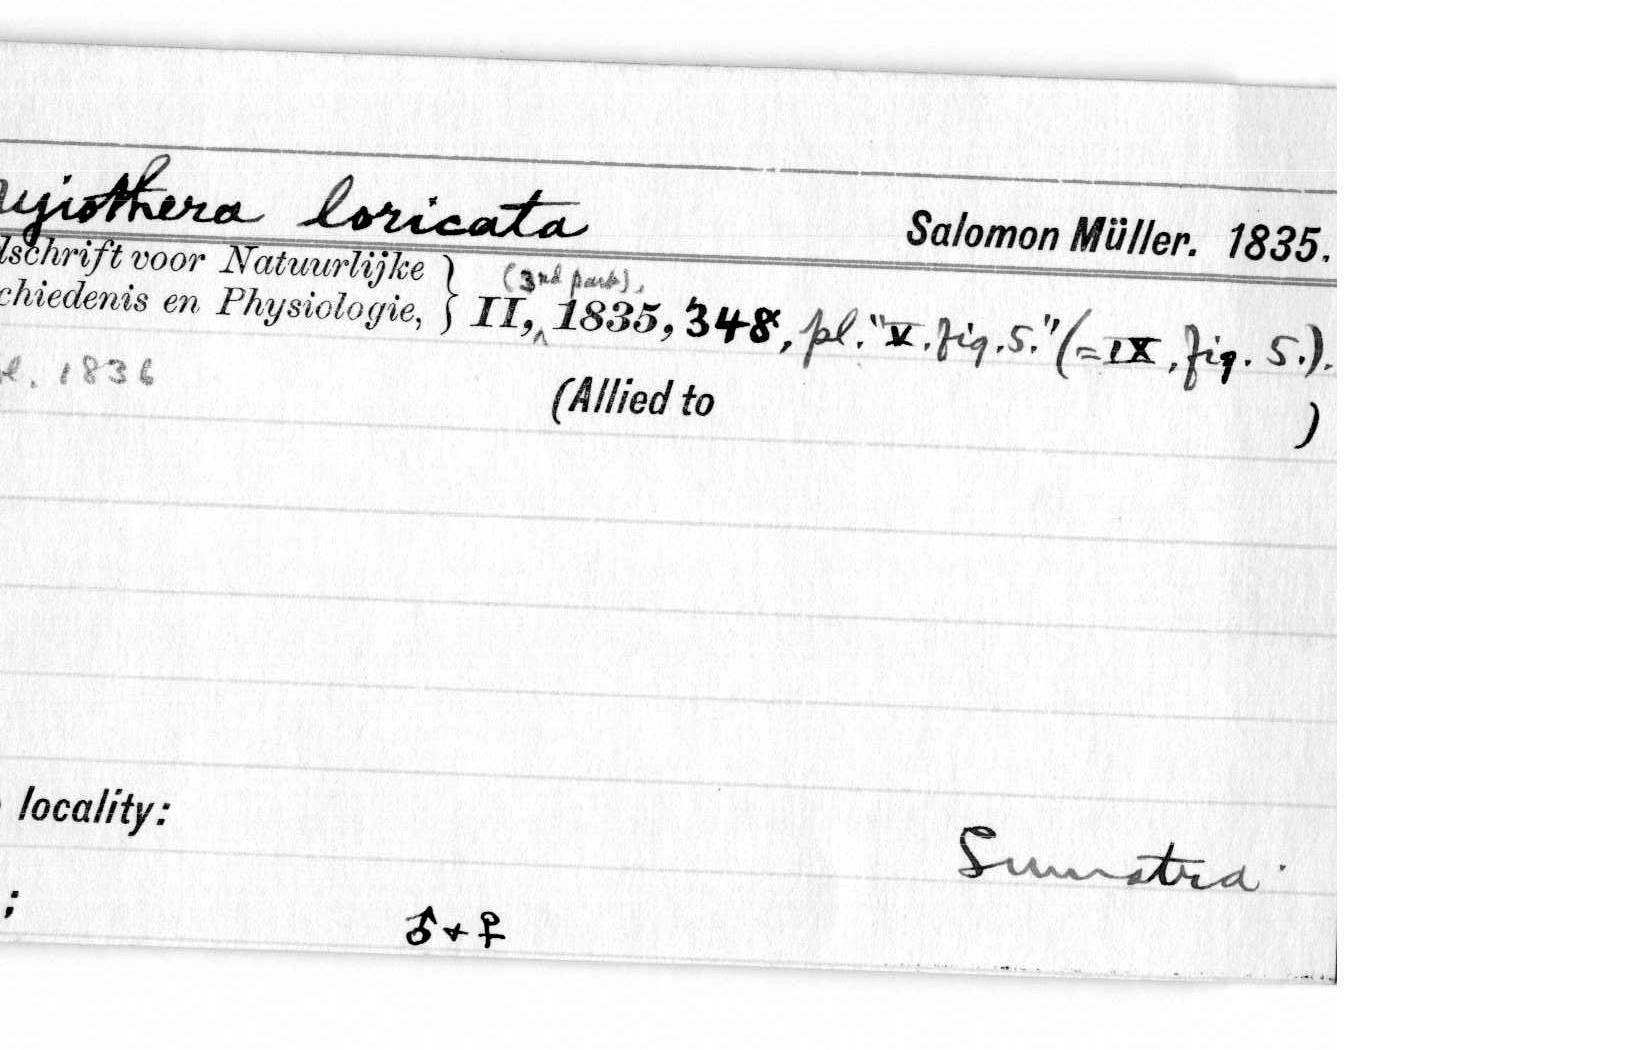 yiothera loricata Salomon Müller. 1835.
dschrift voor Natuurlijke } (3rd part),
chiedenis en Physiologie, } II, ^ 1835, 348, pl. "V. fig. 5." (= IX, fig. 5.).
l. 1836
(Allied to )
locality:
Sumatra.
; ♂ + ♀